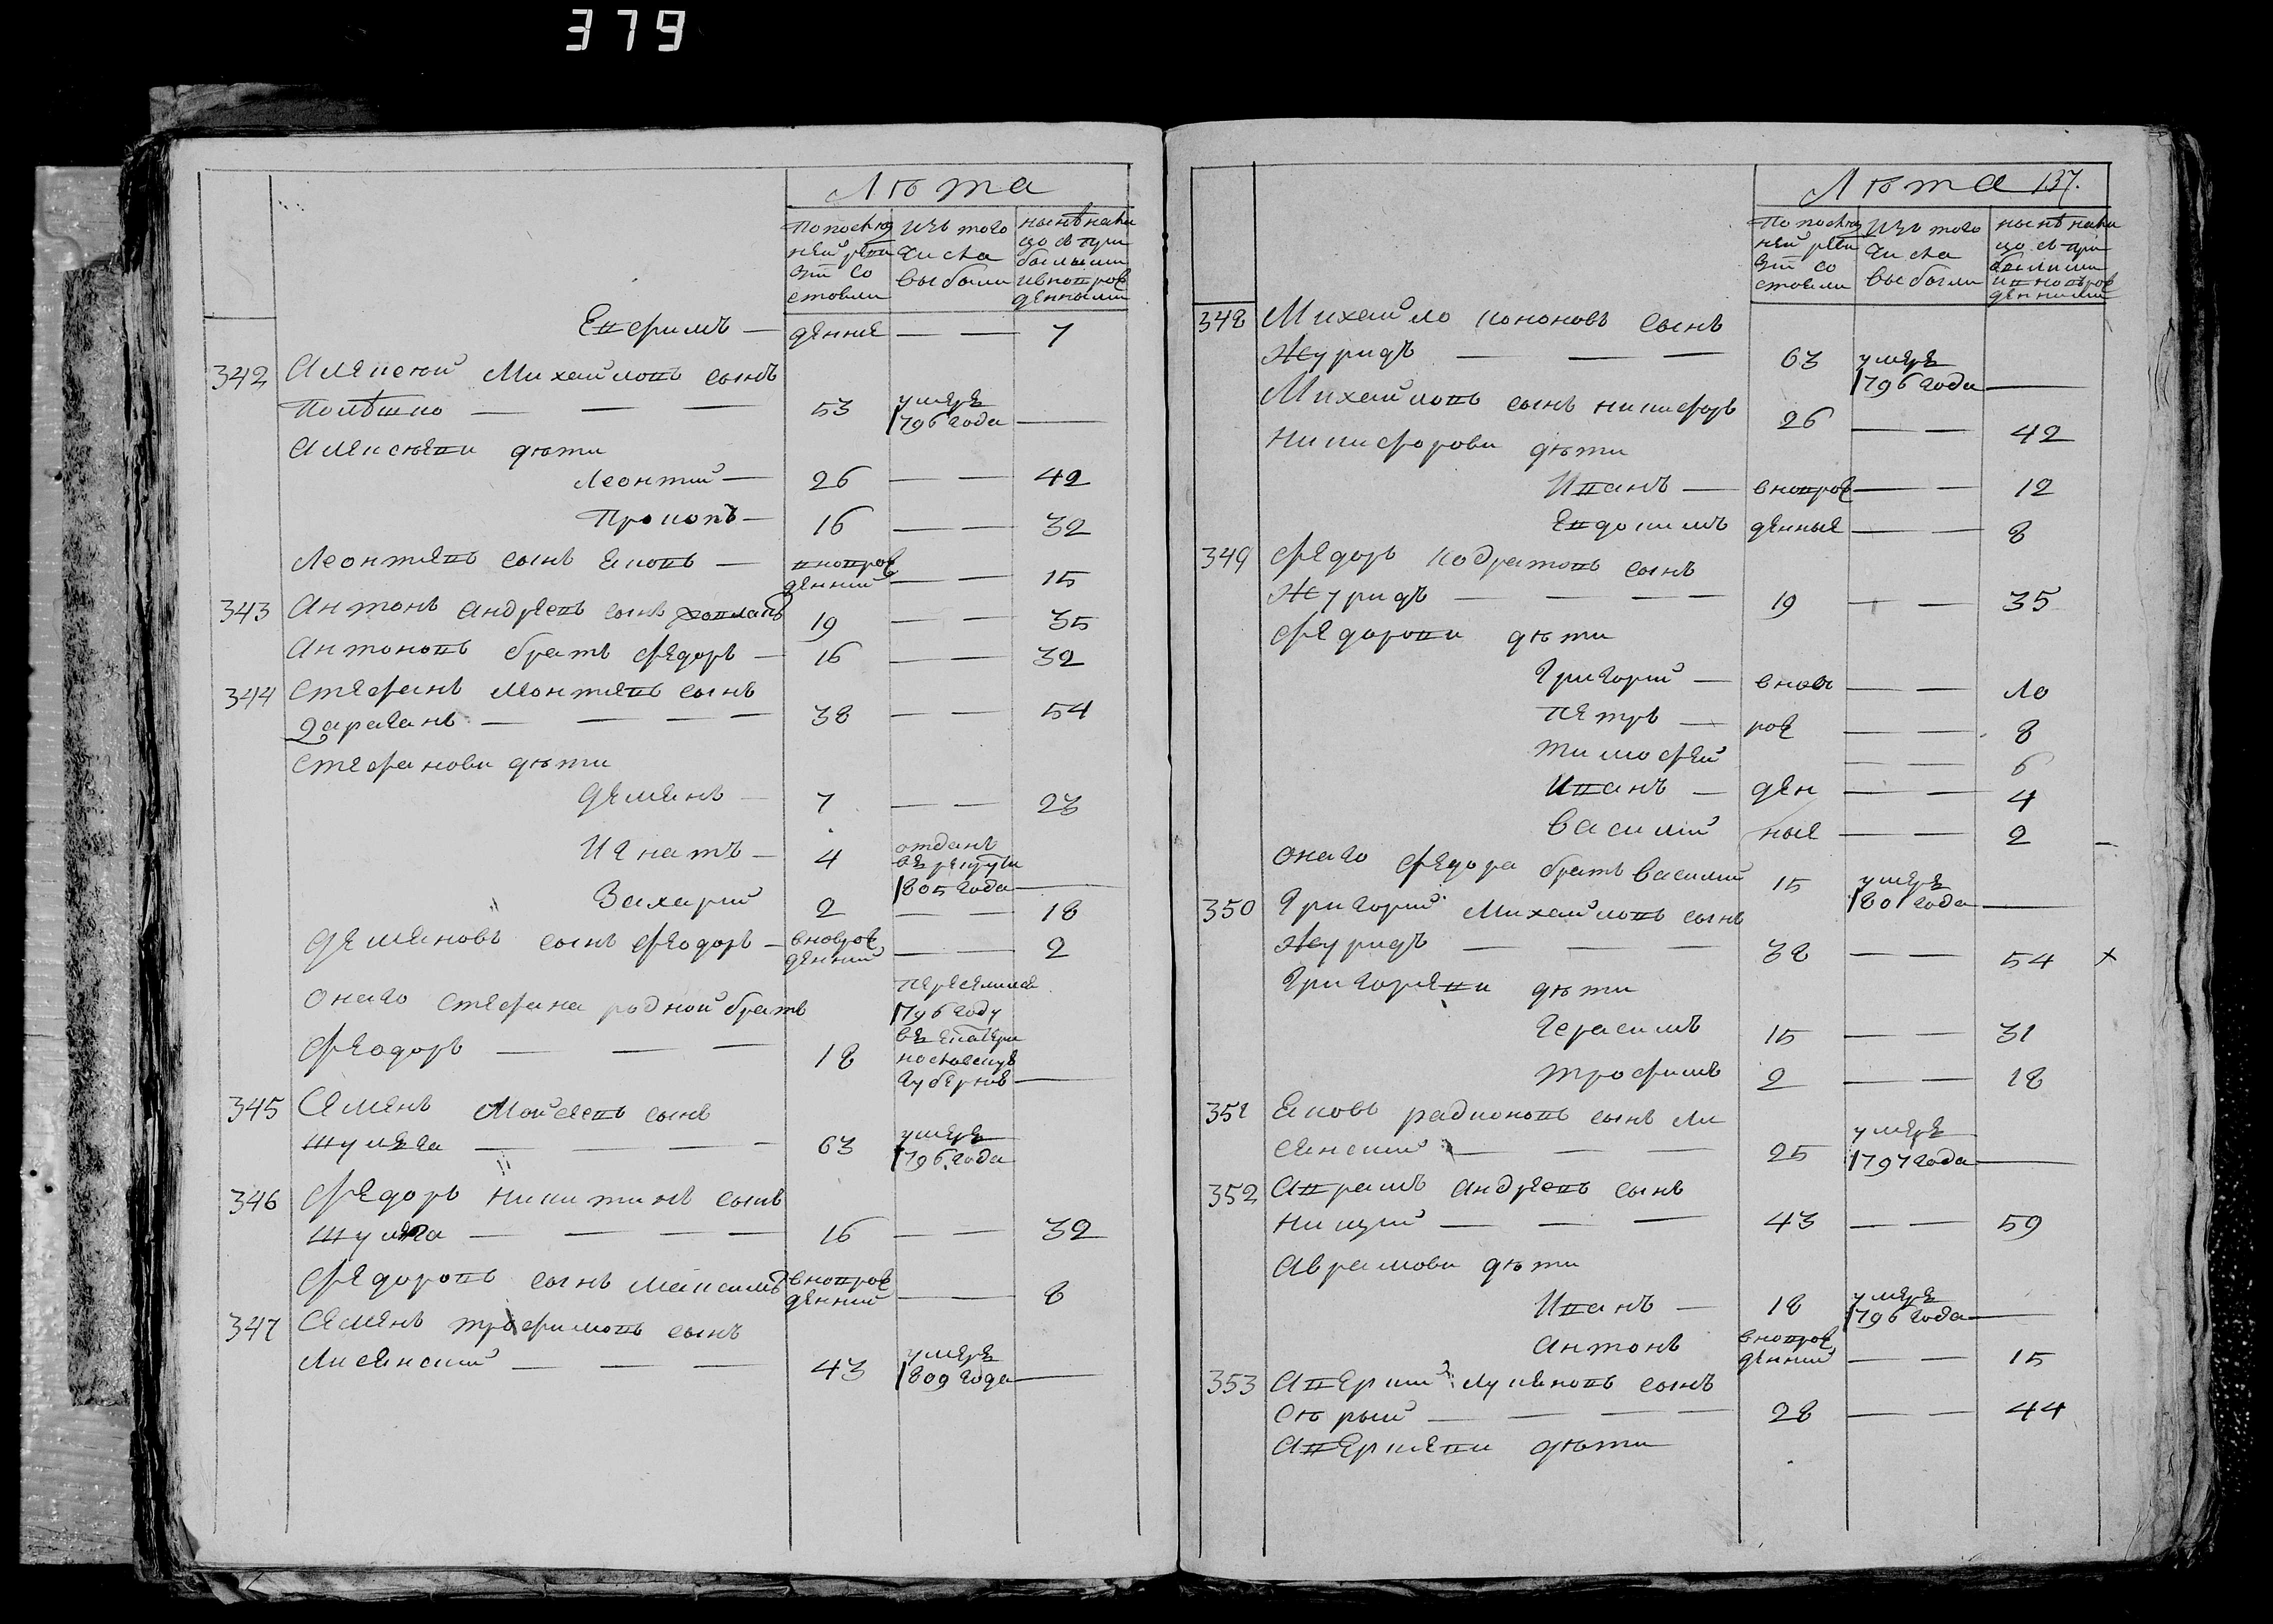 379
Лѣта
По послѣд
ней реви
зіи со
стояли
Изъ того
числа
выбыли
нынѣ нали
цо съ при
былыми
и новорож
денными
Евфимъ — денне — — 7
342 Алексей Михайловъ сынъ
— — — 53 умеръ
1796 года —
Алексѣеви дѣти
Леонтій — 26 — — 42
Прокопъ — 16 — — 32
Леонтіевъ сынъ Яковъ — новорож
денній — — 15
343 Антонъ Андреевъ сынъ 19 — — 35
Антоновъ братъ Федоръ — 16 — — 32
344 Стефанъ Леонтіевъ сынъ
Зараганъ — — — — 38 — — 54
Стефанови дѣти
Деменъ — 7 — — 23
Игнатъ — 4 отданъ
въ рекруты
1805 года —
Захарій 2 — — 18
Деменовъ сынъ Феодоръ — вноврож
денній — — 2
Онаго Стефана родной братъ
Феодоръ — — — 18 переселился
1796 году
въ Екатери
нославскую
губернію —
345 Семенъ Мойсеевъ сынъ
Шуляга — — — — 63 умеръ
1796 года
346 Федоръ Никитинъ сынъ
Шуляга — — — — 16 — — 32
Федоровъ сынъ Максимъ вноврож
денній — — 8
347 Семенъ Трофимовъ сынъ
Лисянский — — — 43 умеръ
1809 года —
Лѣта 137.
По послѣд
ней реви
зіи со
стояли
Изъ того
числа
выбыли
нынѣ нали
цо съ при
былыми
и новорож
денними
348 Михайло Кононовъ сынъ
Журидъ — — — 63 умеръ
1796 года —
Михайловъ сынъ Никифоръ 26 — — 42
Никифорови дѣти
Иванъ — вноврож — — 12
Евдокимъ денные — — 8
349 Федоръ Кодратовъ сынъ
Журидъ — — — — 19 — — 35
Федорови дѣти
Григорий — внов — — 10
Петръ — рож — — 8
Тимофей — — 6
Иванъ — ден — — 4
Василий ные — — 2 —
Онаго Федора братъ Василий 15 умеръ
1801 года —
350 Григорий Михайловъ сынъ
Журидъ — — — 38 — — 54 ×
Григореви дѣти
Герасимъ 15 — — 31
Трофимъ 2 — — 18
351 Яковъ Радионовъ сынъ Ли
сянский — — — 25 умеръ
1797 года —
352 Аврамъ Андреевъ сынъ
Нищий — — — 43 — — 59
Аврамови дѣти
Иванъ — 18 умеръ
1796 года —
Антонъ вноврож
денний — — 15
353 Аверкий Лукяновъ сынъ
Сѣрый — — — — 28 — — 44
Аверкиеви дѣти